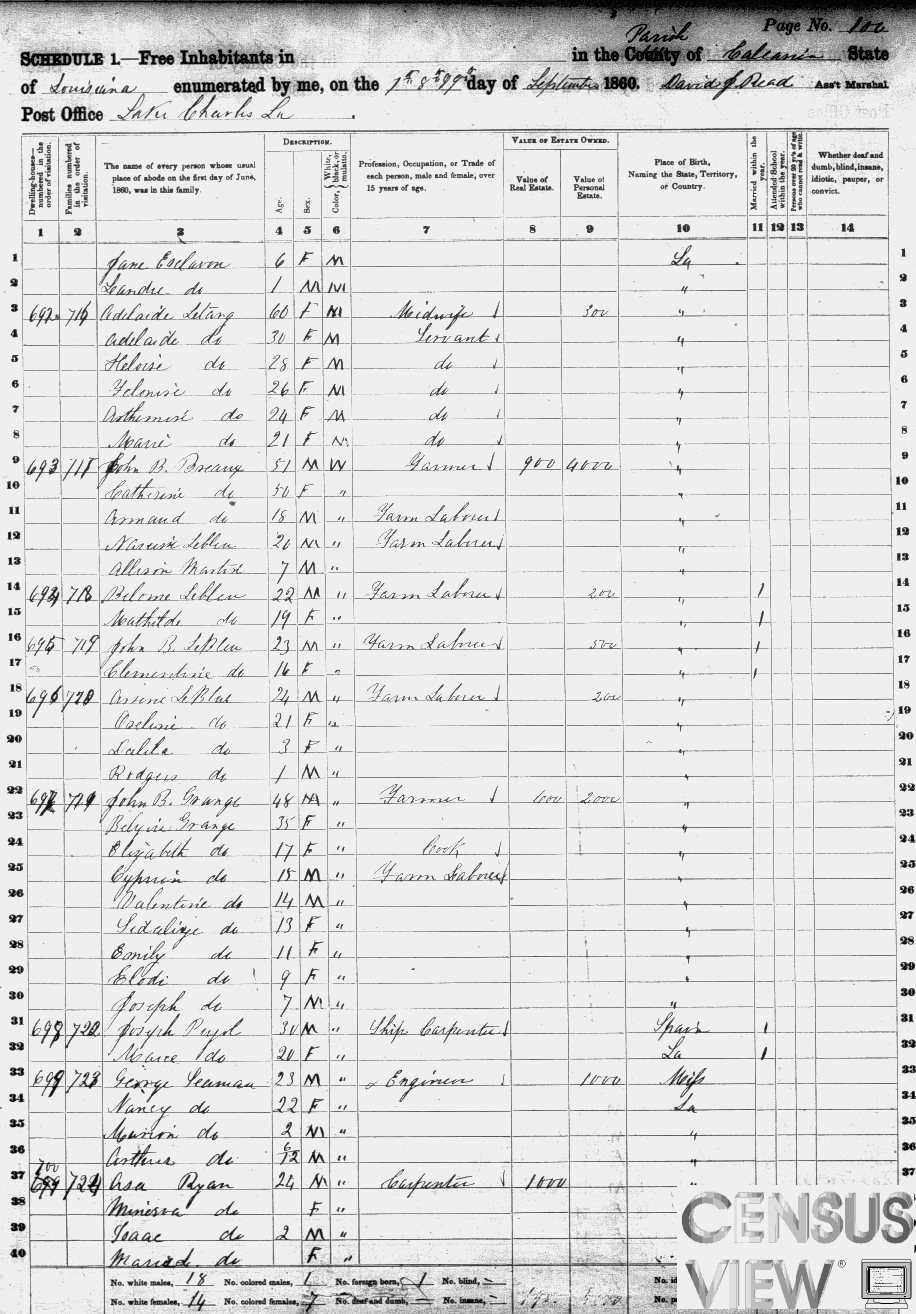 Page No. 100
SCHEDULE 1.—Free Inhabitants in in the County Parish of Calcasieu State
of Louisiana enumerated by me, on the 7th 8th 9th day of September 1860. David J Read Ass't Marshal
Post Office Lake Charles La
Dwelling-houses—numbered in the order of visitation.
Families numbered in the order of visitation.
The name of every person whose usual place of abode on the first day of June, 1860, was in this family.
DESCRIPTION.
Age.
Sex.
Color, White, black, or mulatto.
Profession, Occupation, or Trade of each person, male and female, over 15 years of age.
VALUE OF ESTATE OWNED.
Value of Real Estate.
Value of Personal Estate.
Place of Birth, Naming the State, Territory, or Country.
Married within the year.
Attended School within the year.
Persons over 20 y'rs of age who cannot read & write.
Whether deaf and dumb, blind, insane, idiotic, pauper, or convict.
1 2 3 4 5 6 7 8 9 10 11 12 13 14
1 Jane Esclavon 6 F M La 1
2 Leandre do 1 M M " 2
3 692 716 Adelaide Letang 60 F M Midwife 300 " 3
4 Adelaide do 30 F M Servant " 4
5 Heloise do 28 F M do " 5
6 do 26 F M do " 6
7 Arthemise do 24 F M do " 7
8 Marie do 21 F M do " 8
9 693 717 John B. Breaux 51 M W Farmer 900 4000 " 9
10 Catherine do 50 F " " 10
11 Armand do 18 M " Farm Laborer " 11
12 Narcise Lebleu 20 M " Farm Laborer " 12
13 Allison 7 M " " 13
14 694 718 Lebleu 22 M " Farm Laborer 200 " 1 14
15 Mathilde do 19 F " " 1 15
16 695 719 John B. LeBleu 23 M " Farm Laborer 500 " 1 16
17 Clementine do 16 F " " 1 17
18 696 720 Arsene LeBlue 24 M " Farm Laborer 200 " 18
19 do 21 F " " 19
20 Dalila do 3 F " " 20
21 Rodgers do 1 M " " 21
22 697 721 John B. Grange 48 M " Farmer 2000 " 22
23 Grange 35 F " " 23
24 Elizabeth do 17 F " Cook " 24
25 Cyprien do 15 M " Farm Laborer " 25
26 Valentine do 14 M " " 26
27 Sidalize do 13 F " " 27
28 Emily do 11 F " " 28
29 Elodi do 9 F " " 29
30 Joseph do 7 M " " 30
31 698 722 Joseph Pujol 30 M " Ship Carpenter Spain 1 31
32 Marie do 20 F " La 1 32
33 699 723 George Seaman 23 M " Engineer 1000 Miss 33
34 Nancy do 22 F " La 34
35 Marion do 2 M " " 35
36 Arthur do 6/12 M " " 36
37 700 699 724 Asa Ryan 24 M " Carpenter 1000 " 37
38 Minerva do F " 38
39 Isaac do 2 M " 39
40 do F "
No. white males, 18 No. colored males, 1 No. foreign born, 1 No. blind, –
No. white females, 14 No. colored females, 7 No. deaf and dumb, – No. insane, –
CENSUS
VIEW®